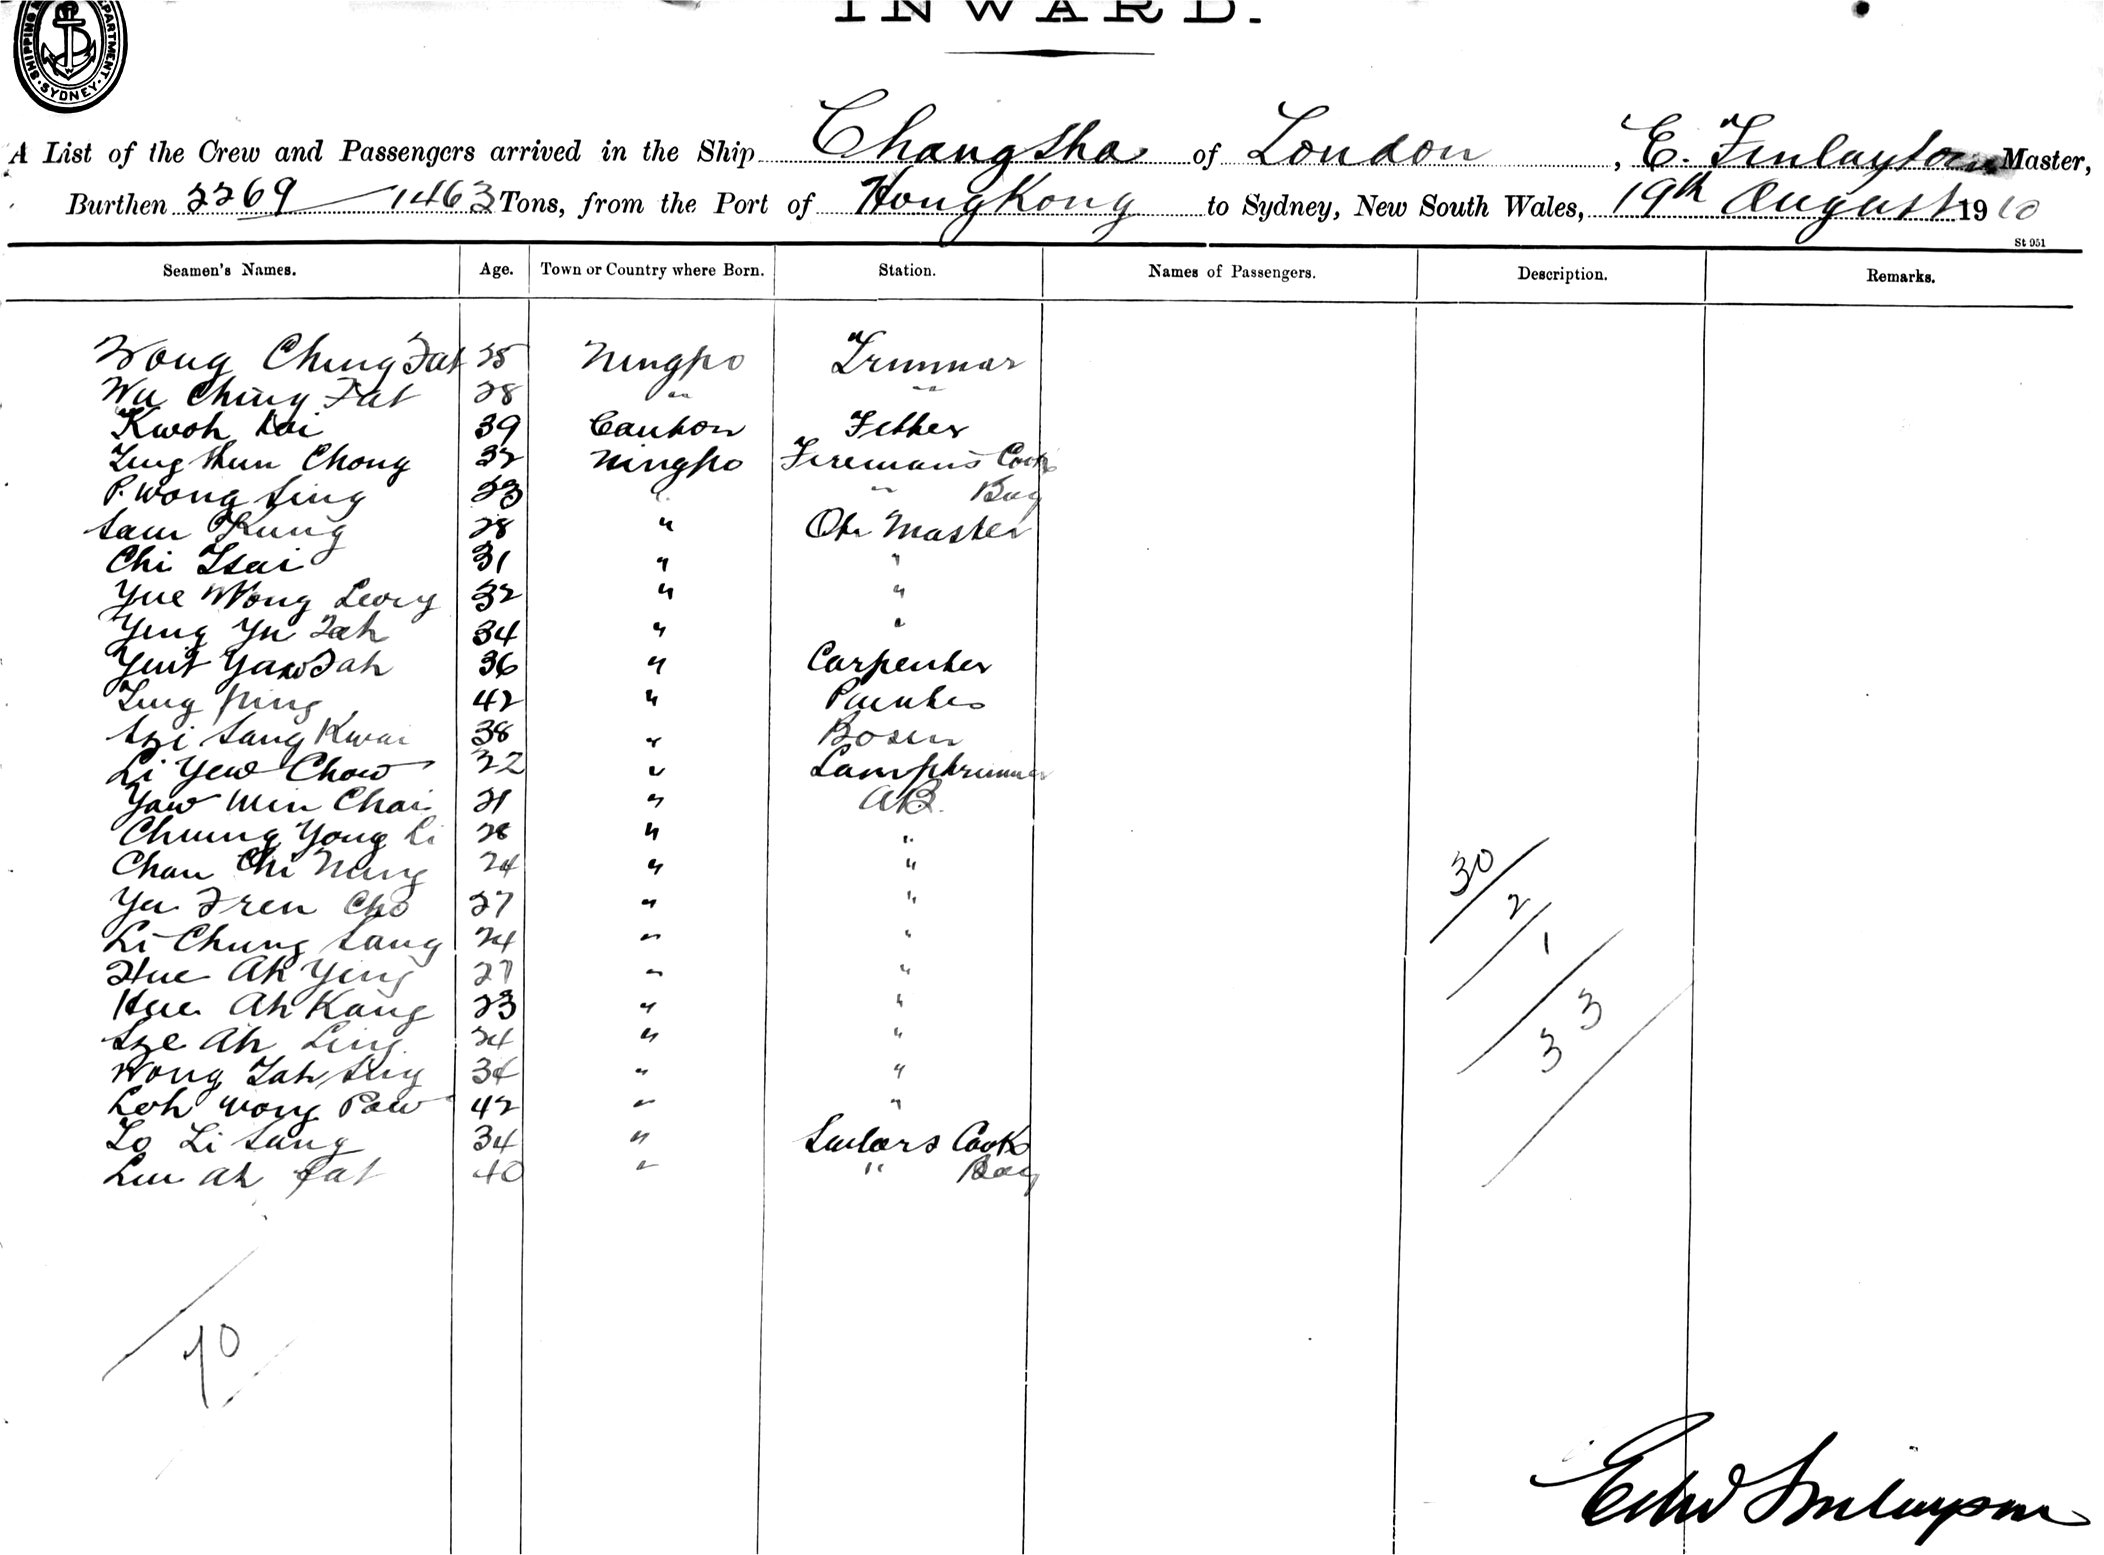 INWARD.
SHIPPING DEPARTMENT. SYDNEY.
A List of the Crew and Passengers arrived in the Ship Changsha of London, E. Finlayson Master,
Burthen 2269 — 1463 Tons, from the Port of HongKong to Sydney, New South Wales, 19th August 1910
St 951
Seamen's Names. Age. Town or Country where Born. Station. Names of Passengers. Description. Remarks.
Wong Ching Fat 25 Ningpo Trimmer
Wu Ching Fat 28 " "
Kwoh Kai 39 Canton Fitter
Ling Shun Chong 32 Ningpo Firemans Cook
P. Wong Sing 23 " " Boy
Sam Kung 28 " Qtr Master
Chi Tsai 31 " "
Yue Wong Leong 32 " "
Ying Yu Tah 34 " "
Yuit Yaw Dah 36 " Carpenter
Ling Ping 42 " Painter
Szi Sang Kwai 38 " Bosun
Li Yew Chow 22 " Lamptrimmer
Yaw Min Chai 21 " AB.
Chung Yong Li 28 " "
Chan Chi Nang 24 " "
Yu Fren Cho 27 " "
Li Chung Sang 24 " "
Hue Ah Ying 27 " "
Hue Ah Kang 23 " "
Sze Ah Ling 24 " "
Wong Tah Sing 34 " "
Loh Wong Paw 42 " "
Lo Li Sang 34 " Sailors Cook
Liu Ah Fat 40 " " Boy
30
2
1
33
70
Edwd Finlayson